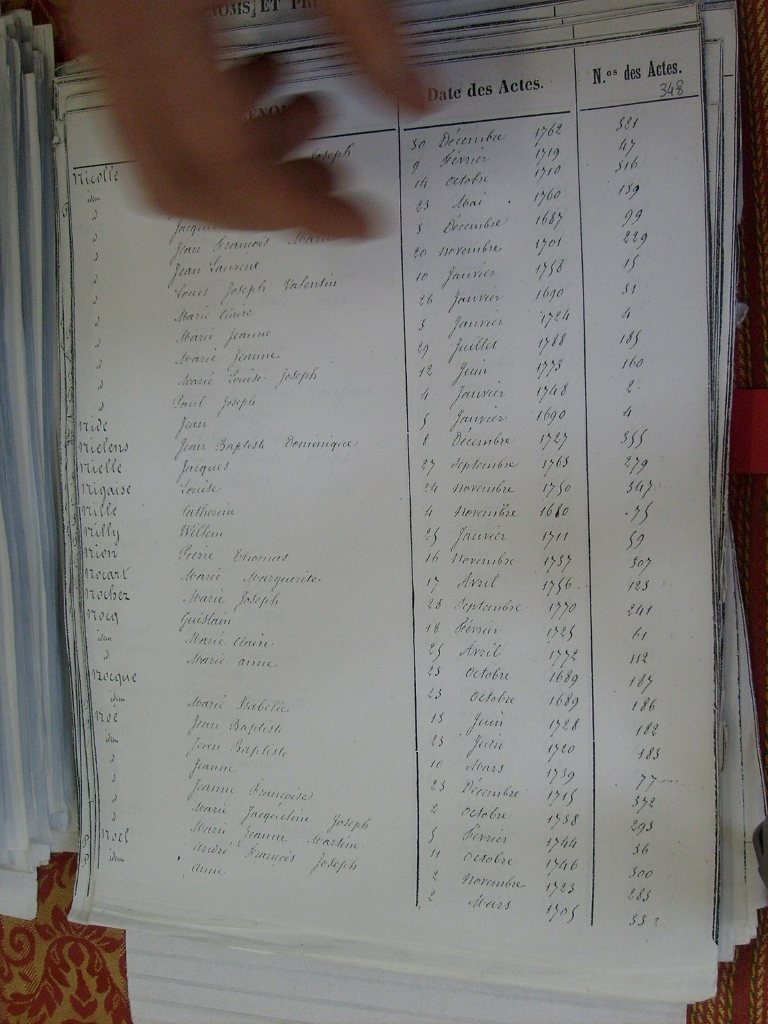 NOMS ET PRÉ
Date des Actes. N.os des Actes.
348
Nicolle Joseph 30 Décembre 1762 321
idem 9 Février 1719 47
d 14 octobre 1710 316
d 23 Mai 1760 139
d Jean François Marie 3 Décembre 1687 99
d Jean Laurent 20 novembre 1701 229
d Louis Joseph Valentin 10 Janvier 1758 15
d Marie Claire 26 Janvier 1690 31
d Marie Jeanne 3 Janvier 1724 4
d Marie Jeanne 29 Juillet 1788 185
d Marie Louise Joseph 12 Juin 1773 160
d Paul Joseph 4 Janvier 1748 2
Nide Jean 5 Janvier 1690 4
Nielens Jean Baptiste Dominique 8 Décembre 1727 355
Nielle Jacques 27 Septembre 1763 279
Nigaise Louise 24 novembre 1750 347
Nille Catherine 4 Novembre 1680 75
Nilly Willem 25 Janvier 1711 59
Nion Pierre Thomas 16 Novembre 1737 307
Nocart Marie Marguerite 17 Avril 1756 123
Nochez Marie Joseph 28 Septembre 1770 241
Nocq Guislain 18 Février 1725 61
idem Marie Claire 25 Avril 1772 112
d Marie anne 23 octobre 1689 187
Nocque 23 octobre 1689 186
idem Marie Isabelle 13 Juin 1728 182
Noé Jean Baptiste 23 Juin 1720 183
idem Jean Baptiste 10 Mars 1739 77
d Jeanne 23 Décembre 1715 372
d Jeanne Françoise 2 octobre 1738 293
d Marie Jacqueline Joseph 5 Février 1744 36
d Marie Jeanne Martine 11 octobre 1746 300
Noel André François Joseph 2 Novembre 1723 283
idem Anne 2 Mars 1705